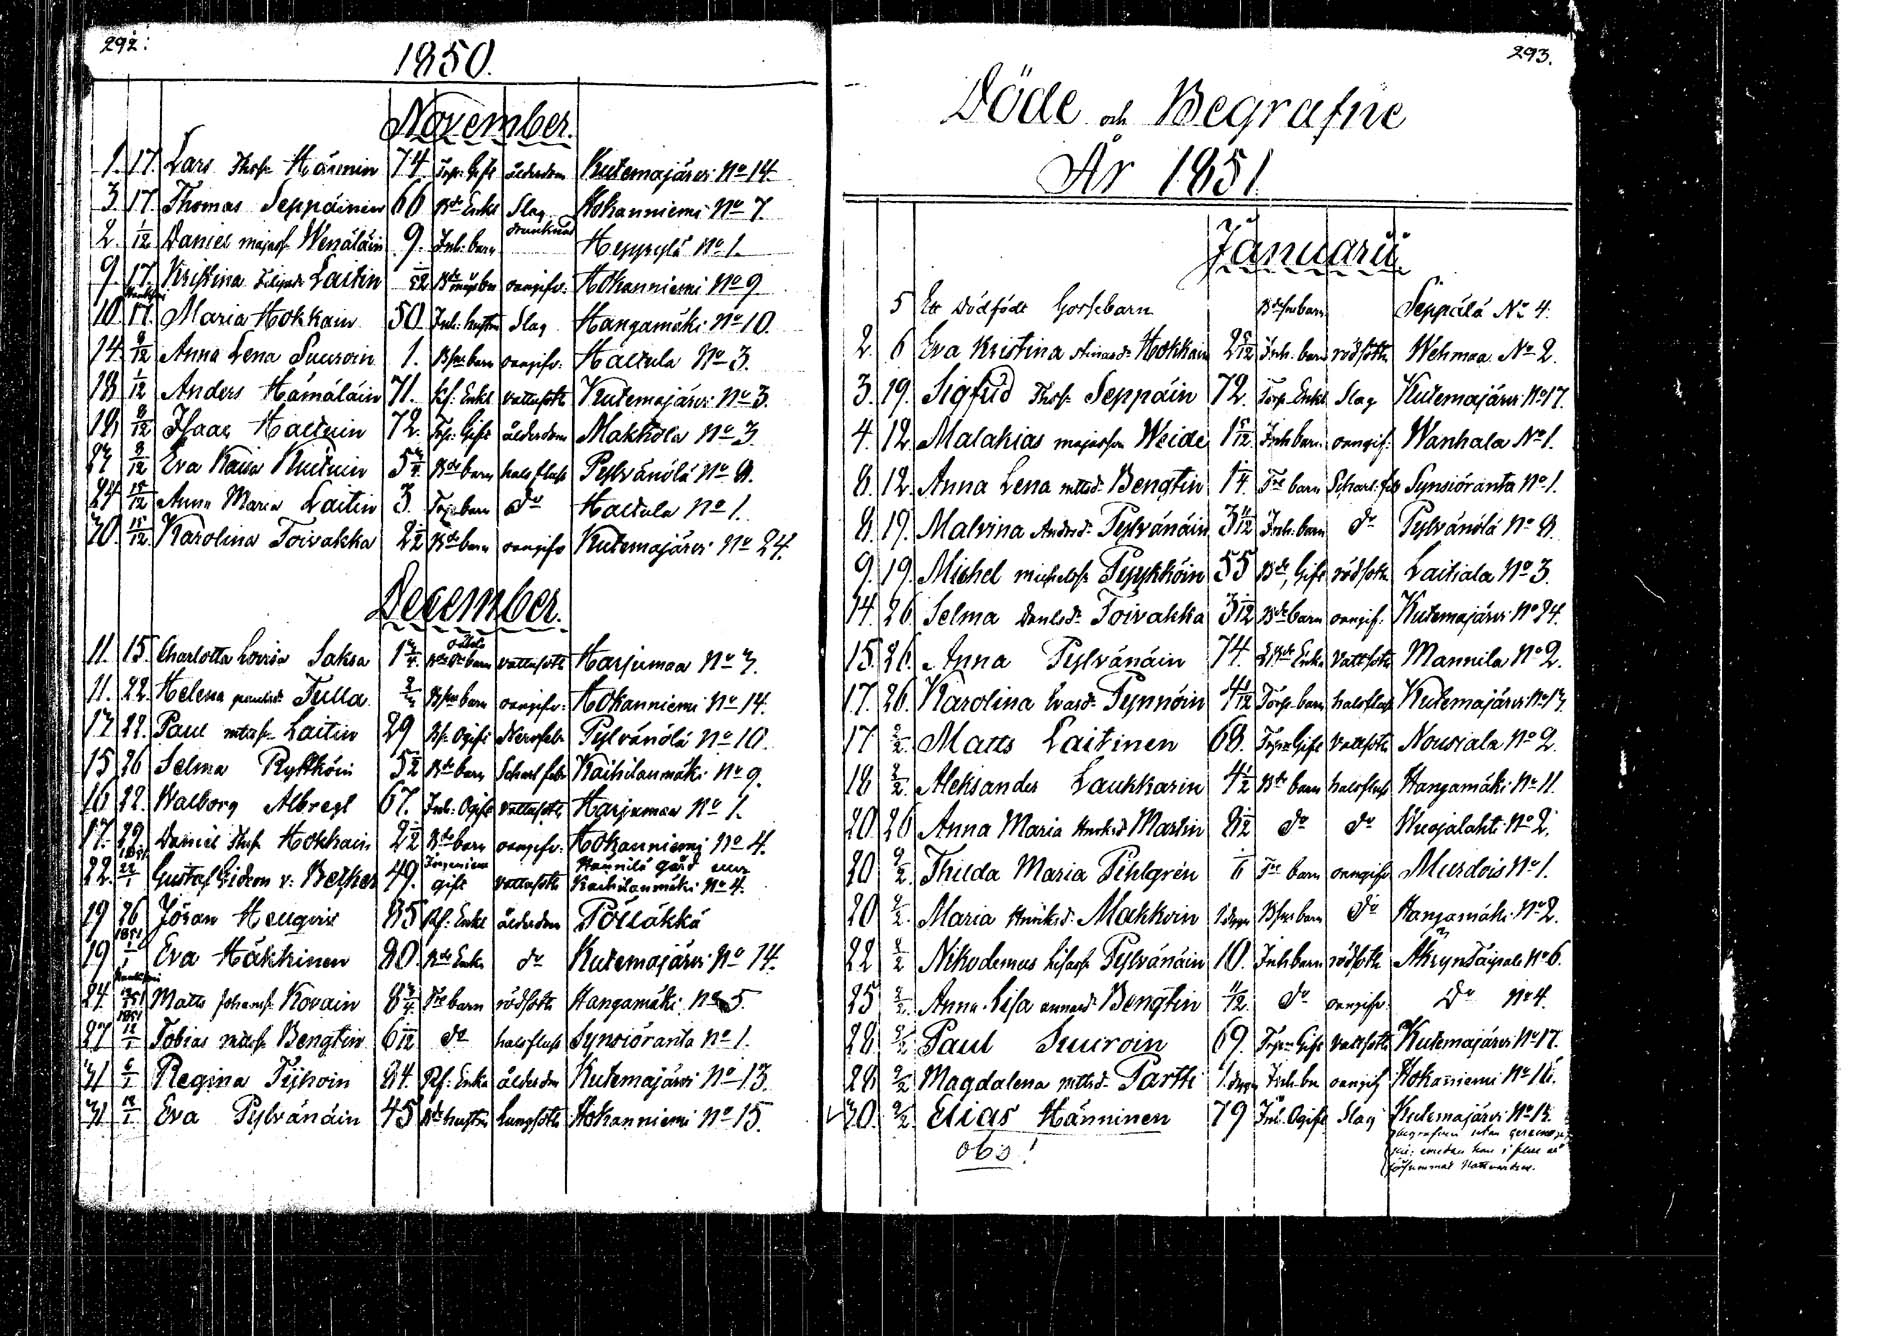 292.
1850.
November.
1. 17. Lars Thoss. Hänninin 74. Torp: Gift ålderdom Kutemajärvi No 14.
3 17. Thomas Seppäinen 66 Bde Enkl Slag Hokanniemi No 7.
2. 1/12 Daniel majass. Wenäläin 9. Inh: barn drunknad Heppylä No 1.
9. 17. Kristina Laitin /52 oangifv: Hokanniemi No 9
10. 17. Maria Hokkain 50. Inh: hustru Slag Hangamäki No 10.
14. 9/12 Anna Lena Suuroin 1. Bfm barn oangifv: Haltula No 3.
18 1/12 Anders Hämäläin 71. Enkl vattusoth Kutemajärvi No 3.
18 8/12 Isaac Haltuin 72. Torp: Gift ålderdom Makkola No 3
27 9/12 Eva Kaisa Kutuin 5 3/4 Bde barn halsfluss Pylvänälä No 8.
24 15/12 Anna Maria Laitin 3. Torp barn do Haltula No 1.
30. 15/12 Karolina Toivakka 2 Bde barn oangifv Kutemajärvi No 24.
December.
11. 15. Charlotta Lovisa Saksa 1 3/4 barn vattusoth Harjumaa No 7.
11. 22. Helena paulsd. Tulla Bfm barn oangifv: Hokanniemi No 14.
17 22. Paul mttss. Laitin 29 Ogift Nervfeb Pylvänälä No 10.
15 26 Selma Pykköin 5 Bde barn Scharl feb: Kaihilanmäki No 9.
16 22. Walborg Albregt 67. Inh: Ogift vattusoth Harjumaa No 1.
17. 29. Daniel Thoss. Hokkain 2 Bde barn oangifv: Hokanniemi No 4.
22. 1851 22/1 Gustaf Gideon v: Becker 49. gift vattusoth Hannilä gård Kaihilanmäki No 4.
19 26 Jöran Heugin 85 Enkl ålderdom Pöllökkä
19 1851 1/1 Eva Häkkinen 80. Bde Enka do Kutemajärvi No 14.
24. 1851 Matts Johanss. Kovain 8 3/4 Tre barn rödsoth Hangamäki No 5.
27 1851 12/1 Tobias mttss. Bengtin 6 /12 do halsfluss Synsiöranta No 1.
31 6/1 Regina Tyhoin 84. Enka ålderdom Kutemajärvi No 13.
31 12/1 Eva Pylvänäin 45 Bde hustru Lungsoth Hokanniemi No 15.
293.
Döde och Begrafne
År 1851
Januarii.
5 Ett Dödfödt Gossebarn barn Seppälä No 4.
2. 6 Eva Kristina Hokkain 2 /12 Inh. barn rödsoth Wehmaa No 2.
3. 19. Sigfrid Thoss. Seppäin 72. Torp. Enkl Slag Kutemajärvi No 17.
4. 12 Malakias majasson Weide 1 /12 Inh barn oangif: Wanhala No 1.
8. 12. Anna Lena mttsd. Bengtin 1 /4 Tre barn Scharl: feb Synsiöranta No 1.
8. 19. Malvina Andersd. Pylvänäin 3 /12 Inh: barn do Pylvänälä No 8
9. 19. Michel michelss. Pyykköin 55 Bde, Gift rödsoth Laitiala No 3.
14. 26. Selma Danlsd. Toivakka 3 /12 Bde barn oangif: Kutemajärvi No 24.
15. 26. Anna Pylvänäin 74. Enka vattsoth Mannila No 2.
17. 26. Karolina Pynnöin 4 /12 Torp barn halsfluss Kutemajärvi No 17.
17 2/2 Matts Laitinen 68. Torp Gift vattsoth Nousiala No 2.
18 2/2 Aleksander Laukkarin 4 Bde barn halsfluss Hangamäki No 11.
20 26 Anna Maria Henriksd. Martin 8 do do Wuojalahti No 2.
20 2/2 Thilda Maria Pihlgrén Tre barn oangifv Murdois No 1.
20 2/2 Maria Henriksd. Makkoin 1 dygn Bfm barn do Hangamäki No 2.
22 2/2 Nikodemus Lisass. Pylvänäin 10. Inh: barn rödsoth Äkryntaipale No 6.
25 2/2 Anna Lisa annasd. Bengtin 11/12. do oangifv. Do No 4.
28 2/2 Paul Suuroin 69. Torp Gift vattsoth Kutemajärvi No 17.
28 9/2 Magdalena mttsd. Partti 1 dygn Inh. bn oangif Hokaniemi No 16.
30. 9/2 Elias Hänninen 79 Inh. Ogift Slag Kutemajärvi No 13.
obs!
begrafven utan
emedan han i flere år
försummat Nattvarden.